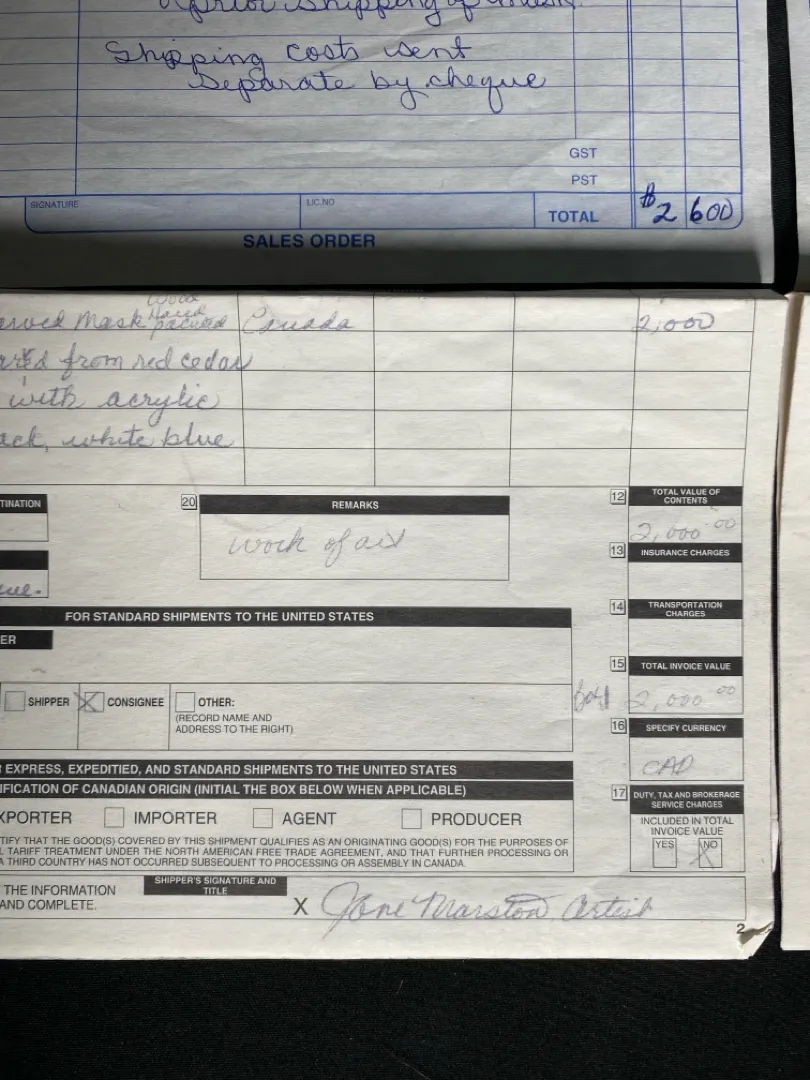 prior shipping of mask.
Shipping costs sent
separate by cheque
GST
PST
SIGNATURE
LIC.NO
TOTAL
$2 600
SALES ORDER
Wood
arved Mask Hand Canada 2,000
from red cedar
with acrylic
ack, white blue
TINATION
20 REMARKS
work of art
12 TOTAL VALUE OF
CONTENTS
2,000 00
13 INSURANCE CHARGES
FOR STANDARD SHIPMENTS TO THE UNITED STATES
14 TRANSPORTATION
CHARGES
ER
15 TOTAL INVOICE VALUE
2,000 00
SHIPPER X CONSIGNEE OTHER:
(RECORD NAME AND
ADDRESS TO THE RIGHT)
16 SPECIFY CURRENCY
CAD
EXPRESS, EXPEDITIED, AND STANDARD SHIPMENTS TO THE UNITED STATES
IFICATION OF CANADIAN ORIGIN (INITIAL THE BOX BELOW WHEN APPLICABLE)
XPORTER IMPORTER AGENT PRODUCER
17 DUTY, TAX AND BROKERAGE
SERVICE CHARGES
INCLUDED IN TOTAL
INVOICE VALUE
YES NO X
TIFY THAT THE GOOD(S) COVERED BY THIS SHIPMENT QUALIFIES AS AN ORIGINATING GOOD(S) FOR THE PURPOSES OF
L TARIFF TREATMENT UNDER THE NORTH AMERICAN FREE TRADE AGREEMENT, AND THAT FURTHER PROCESSING OR
A THIRD COUNTRY HAS NOT OCCURRED SUBSEQUENT TO PROCESSING OR ASSEMBLY IN CANADA.
THE INFORMATION
AND COMPLETE.
SHIPPER'S SIGNATURE AND
TITLE
X Jane Marston, Artist
2